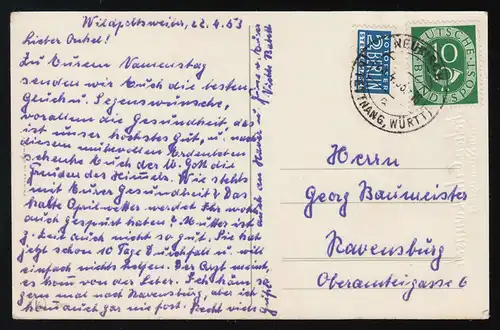 Wildpoltsweiler, 22.4.53
Lieber Onkel!
Zu Eurem Namenstag
senden wir Euch die besten
Glück u. Segenswünsche,
vorallem die Gesundheit das
ist unser höchstes Gut, u. nach
diesem mühvollen Erdenleben
schenke Euch der lb. Gott die
Freuden des Himmels. Wie stehts
mit Eurer Gesundheit? Das
kalte Aprilwetter werdet Ihr wohl
auch gespürt haben? Mutter ist
z. Zeit auch nicht so gut. Sie hat
jetzt schon 10 Tage Durchfall u. will
einfach nichts helfen. Der Arzt meint,
es kom von der Leber. Ich käm so
gern mal nach Ravensburg, aber ich
kom auch gar nie fort. Recht viele
Grüße
auch an Xaver u.
NOTOPFER
2 BERLIN
STEUERMARKE
DEUTSCHE
BUNDESPOST
10
NEU
TNANG, WÜRTT.
Herrn
Georg Baumeister
Ravensburg
Oberamteigasse 6